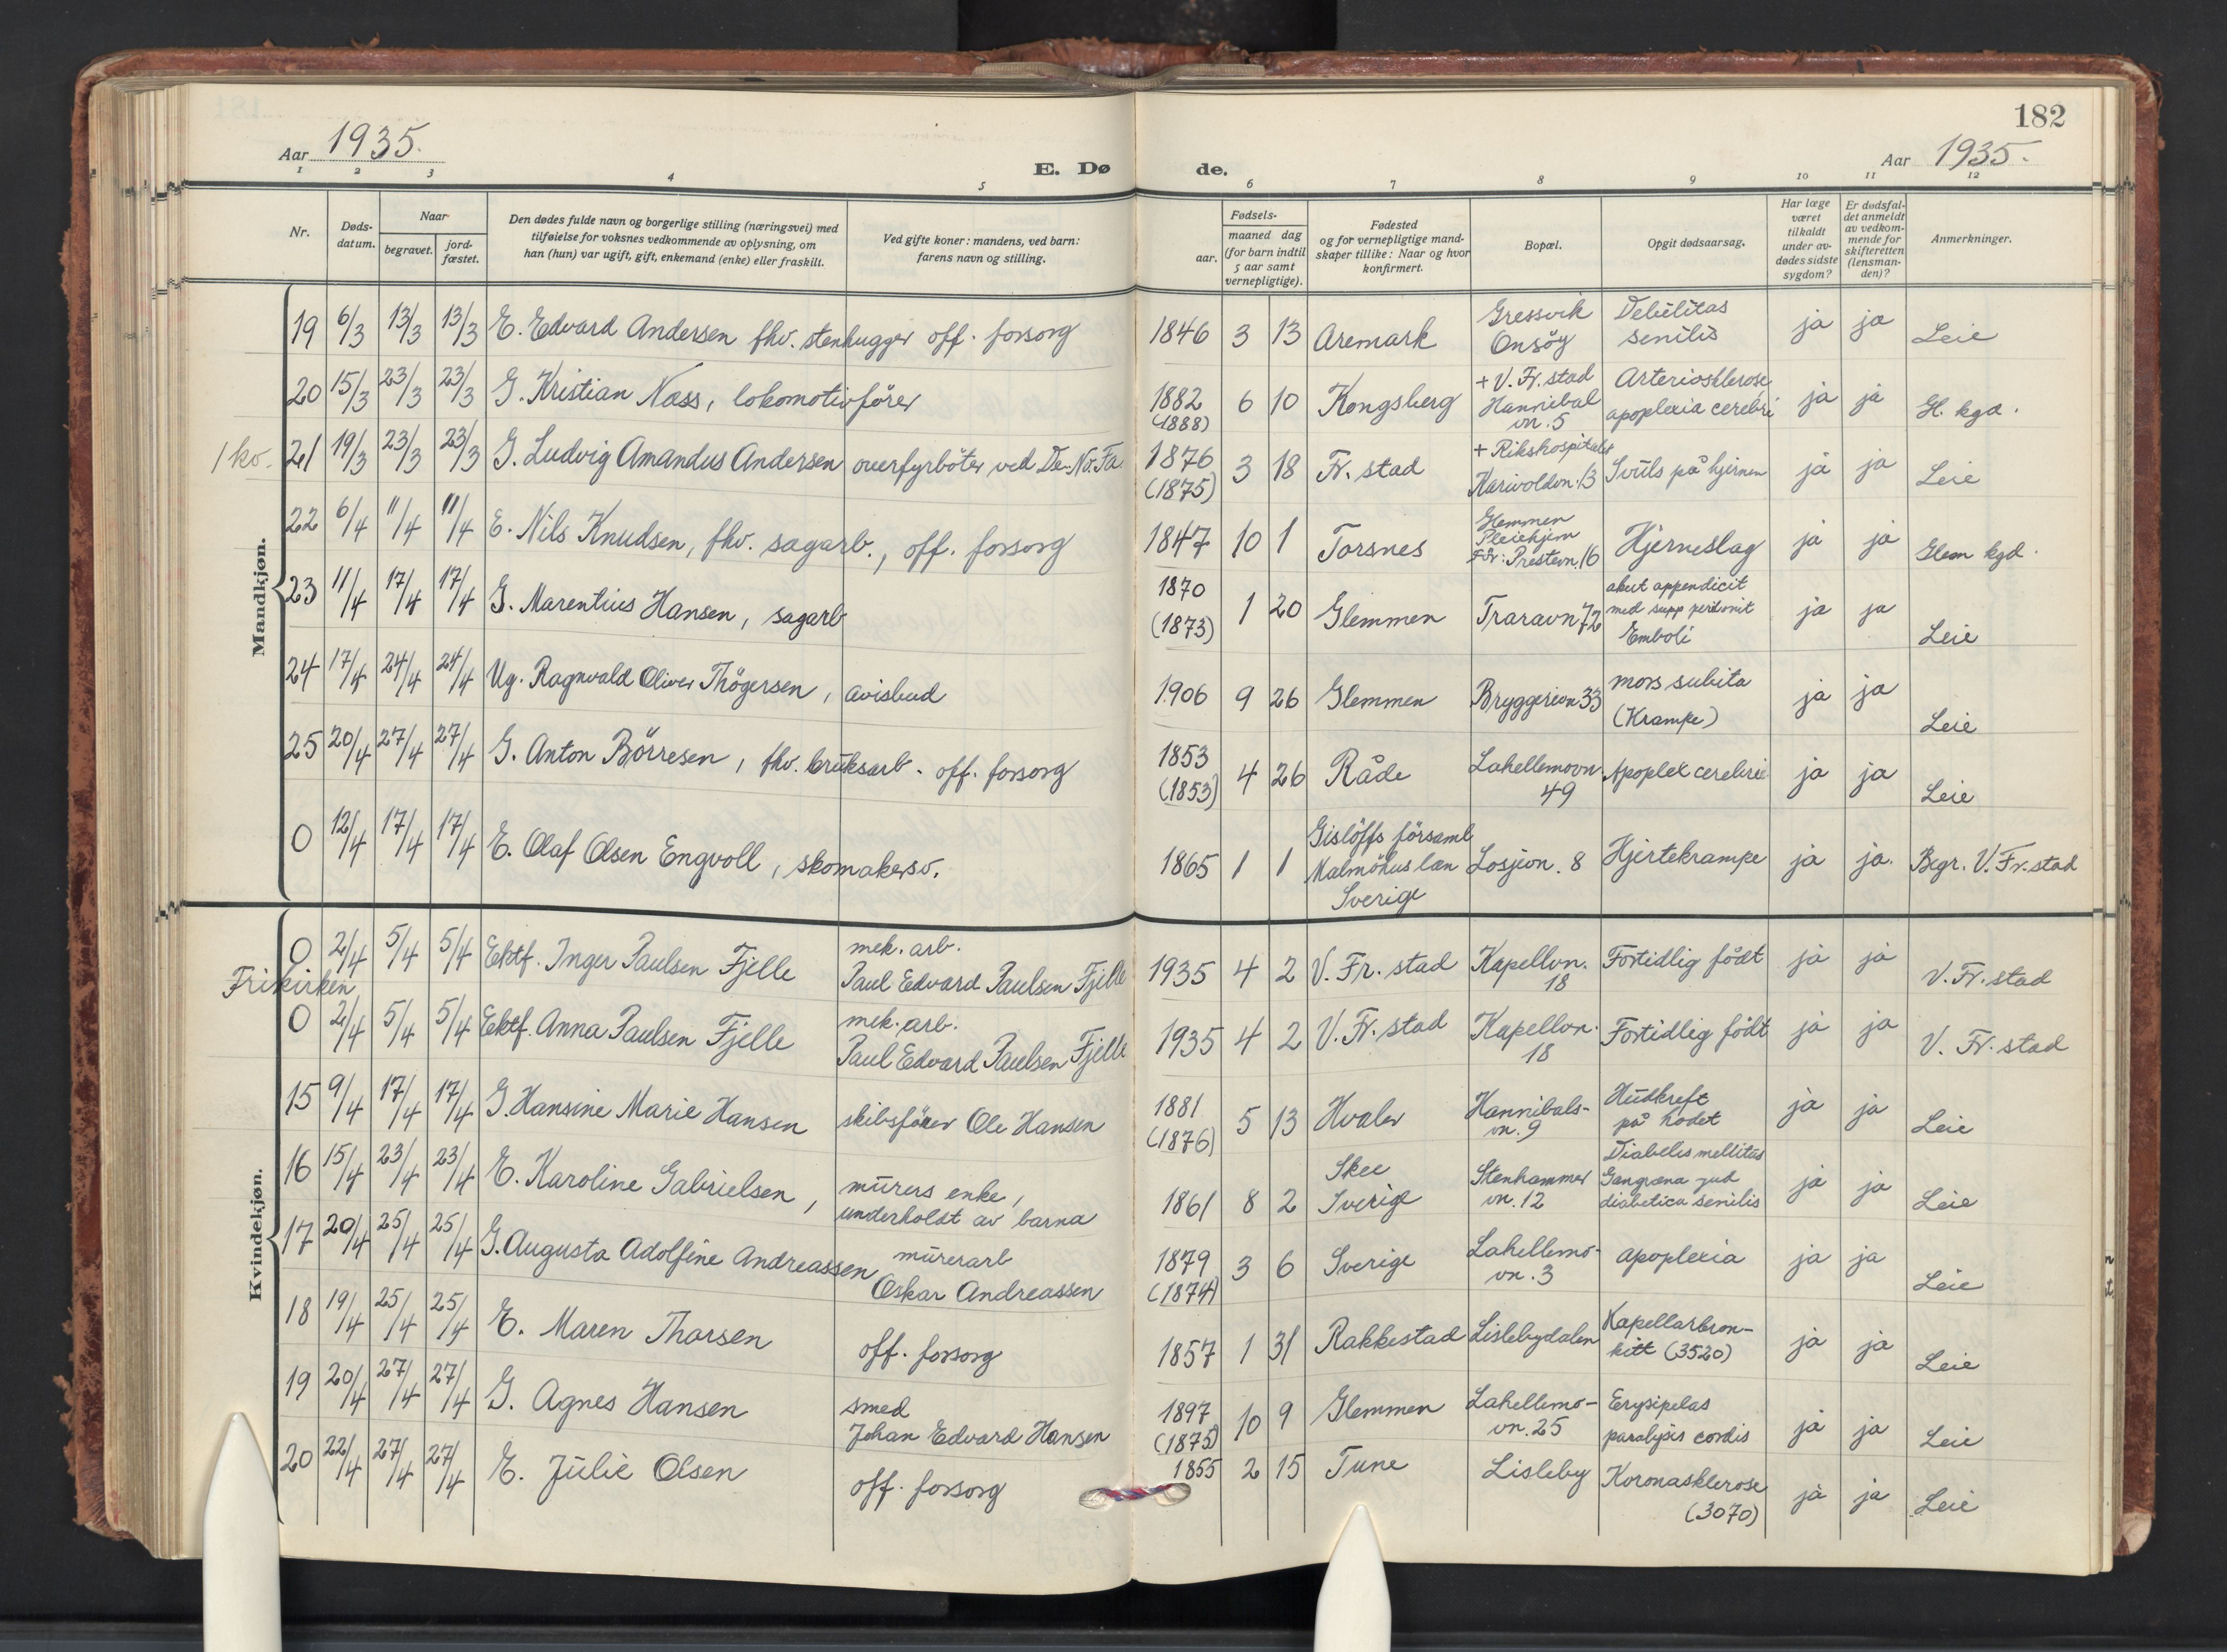 182
Aar 1935.
E. Dø de.
Aar 1935.
1 2 3 4 5 6 7 8 9 10 11 12
Nr.
Døds-
datum.
Naar
begravet.
jord-
fæstet.
Den dødes fulde navn og borgerlige stilling (næringsvei) med
tilføielse for voksnes vedkommende av oplysning, om
han (hun) var ugift, gift, enkemand (enke) eller fraskilt.
Ved gifte koner: mandens, ved barn:
farens navn og stilling.
Fødsels-
aar.
maaned dag
(for barn indtil
5 aar samt
vernepligtige).
Fødested
og for vernepligtige mand-
skaper tillike: Naar og hvor
konfirmert.
Bopæl.
Opgit dødsaarsag.
Har læge
været
tilkaldt
under av-
dødes sidste
sygdom?
Er dødsfal-
det anmeldt
av vedkom-
mende for
skifteretten
(lensman-
den)?
Anmerkninger.
Mandkjøn.
19 6/3 13/3 13/3 E. Edvard Andersen fhv. stenhugger off. forsorg 1846 3 13 Aremark Gressvik Onsöy Debilitas senilis ja ja Leie
20 15/3 23/3 23/3 G. Kristian Næss, lokomotivförer 1882 (1888) 6 10 Kongsberg + V. Fr. stad Hannibal vn. 5 Arteriosklerose, apoplexia cerebri ja ja Gl. kgd.
1 ko. 21 19/3 23/3 23/3 G. Ludvig Amandus Andersen overfyrböter ved De-No-Fa. 1876 (1875) 3 18 Fr. stad + Rikshospitalet Karivoldvn. 13 Svuls på hjernen ja ja Leie
22 6/4 11/4 11/4 E. Nils Knudsen, fhv. sagarb., off. forsorg 1847 10 1 Torsnes Glemmen Pleiehjem Før: Prestevn. 16 Hjerneslag ja ja Glem kgd.
23 11/4 17/4 17/4 G. Marentius Hansen, sagarb 1870 (1873) 1 20 Glemmen Traravn 72 akut appendicit med supp peritonit Emboli ja ja Leie
24 17/4 24/4 24/4 Ug. Ragnvald Oliver Thögersen, avisbud 1906 9 26 Glemmen Bryggerivn 33 mors subita (Krampe) ja ja Leie
25 20/4 27/4 27/4 G. Anton Börresen, fhv. bruksarb. off. forsorg 1853 (1853) 4 26 Råde Lahellemovn. 49 Apoplex cerebri ja ja Leie
0 12/4 17/4 17/4 E. Olaf Olsen Engvoll, skomakersv. 1865 1 1 Gislöffs församl Malmöhus län Sverige Losjevn. 8 Hjertekrampe ja ja. Begr. V. Fr. stad
Kvindekjøn.
Frikirken
0 2/4 5/4 5/4 Ektf. Inger Paulsen Fjelle mek. arb. Paul Edvard Paulsen Fjelle 1935 4 2 V. Fr. stad Kapellvn. 18 Fortidlig födt ja ja V. Fr. stad
0 2/4 5/4 5/4 Ektf. Anna Paulsen Fjelle mek. arb. Paul Edvard Paulsen Fjelle 1935 4 2 V. Fr. stad Kapellvn. 18 Fortidlig födt ja ja V. Fr. stad
15 9/4 17/4 17/4 G. Hansine Marie Hansen skibsförer Ole Hansen 1881 (1876) 5 13 Hvaler Hannibals- vn. 9 Hudkreft på hodet ja ja Leie
16 15/4 23/4 23/4 E. Karoline Gabrielsen, murers enke, underholdt av barna 1861 8 2 Skee Sverige Stenhammer vn. 12 Diabetes mellitus Gangræna diabetica senilis ja ja Leie
17 20/4 25/4 25/4 G. Augusta Adolfine Andreassen murerarb Oskar Andreassen 1879 (1874) 3 6 Sverige Lahellemo- vn. 3 apoplexia ja ja Leie
18 19/4 25/4 25/4 E. Maren Thorsen off. forsorg 1857 1 31 Rakkestad Lislebydalen Kapellarbron- kitt (3520) ja ja Leie
19 20/4 27/4 27/4 G. Agnes Hansen smed Johan Edvard Hansen 1897 (1875) 10 9 Glemmen Lahellemo- vn. 25 Erysipelas paralysis cordis ja ja Leie
20 22/4 27/4 27/4 E. Julie Olsen off. forsorg 1855 2 15 Tune Lisleby Koronasklerose (3070) ja ja Leie